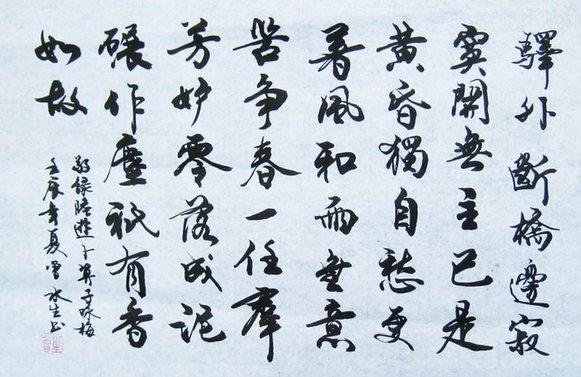 驛外斷橋邊寂
寞開無主已是
黄昏獨自愁更
著風和雨無意
苦争春一任羣
芳妒零落成泥
碾作塵祇有香
如故
敬録陸游卜算子咏梅
壬辰年夏 水生书